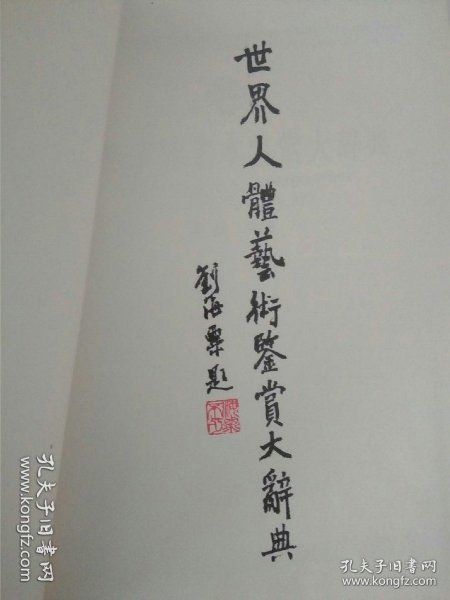 世界人體藝術鑒賞大辭典
劉海粟題
孔夫子旧书网
孔夫子旧书网
http://book.kongfz.com